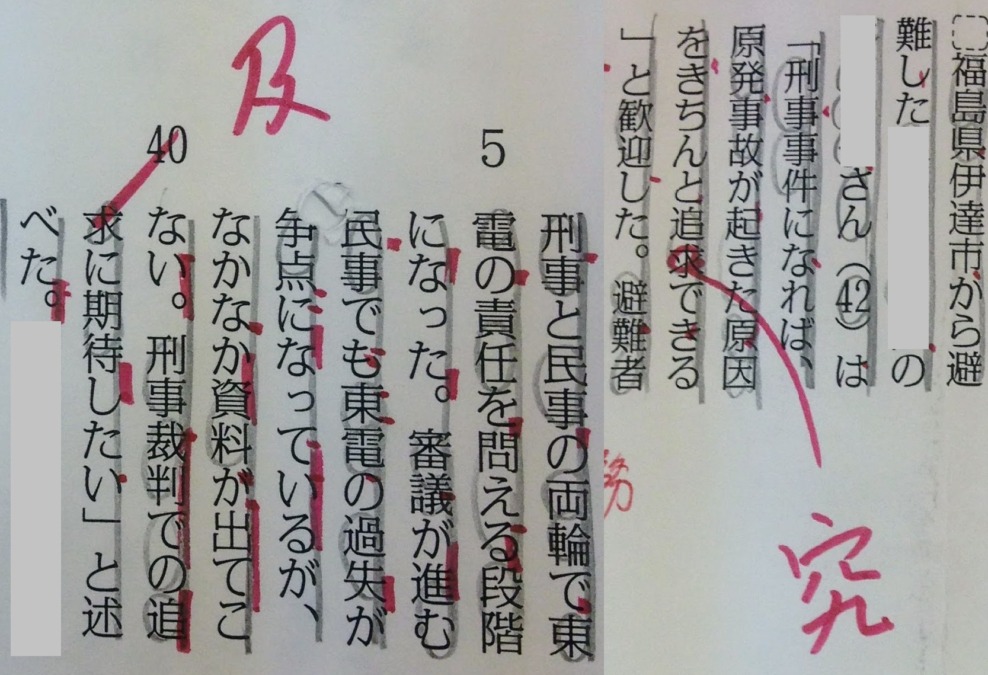 福島県伊達市から避
難した
の
さん（42）は
「刑事事件になれば、
原発事故が起きた原因
をきちんと追求できる
」と歓迎した。避難者
究
刑事と民事の両輪で東
電の責任を問える段階
になった。審議が進む
民事でも東電の過失が
争点になっているが、
なかなか資料が出てこ
ない。刑事裁判での追
求に期待したい」と述
べた。
5
40
及